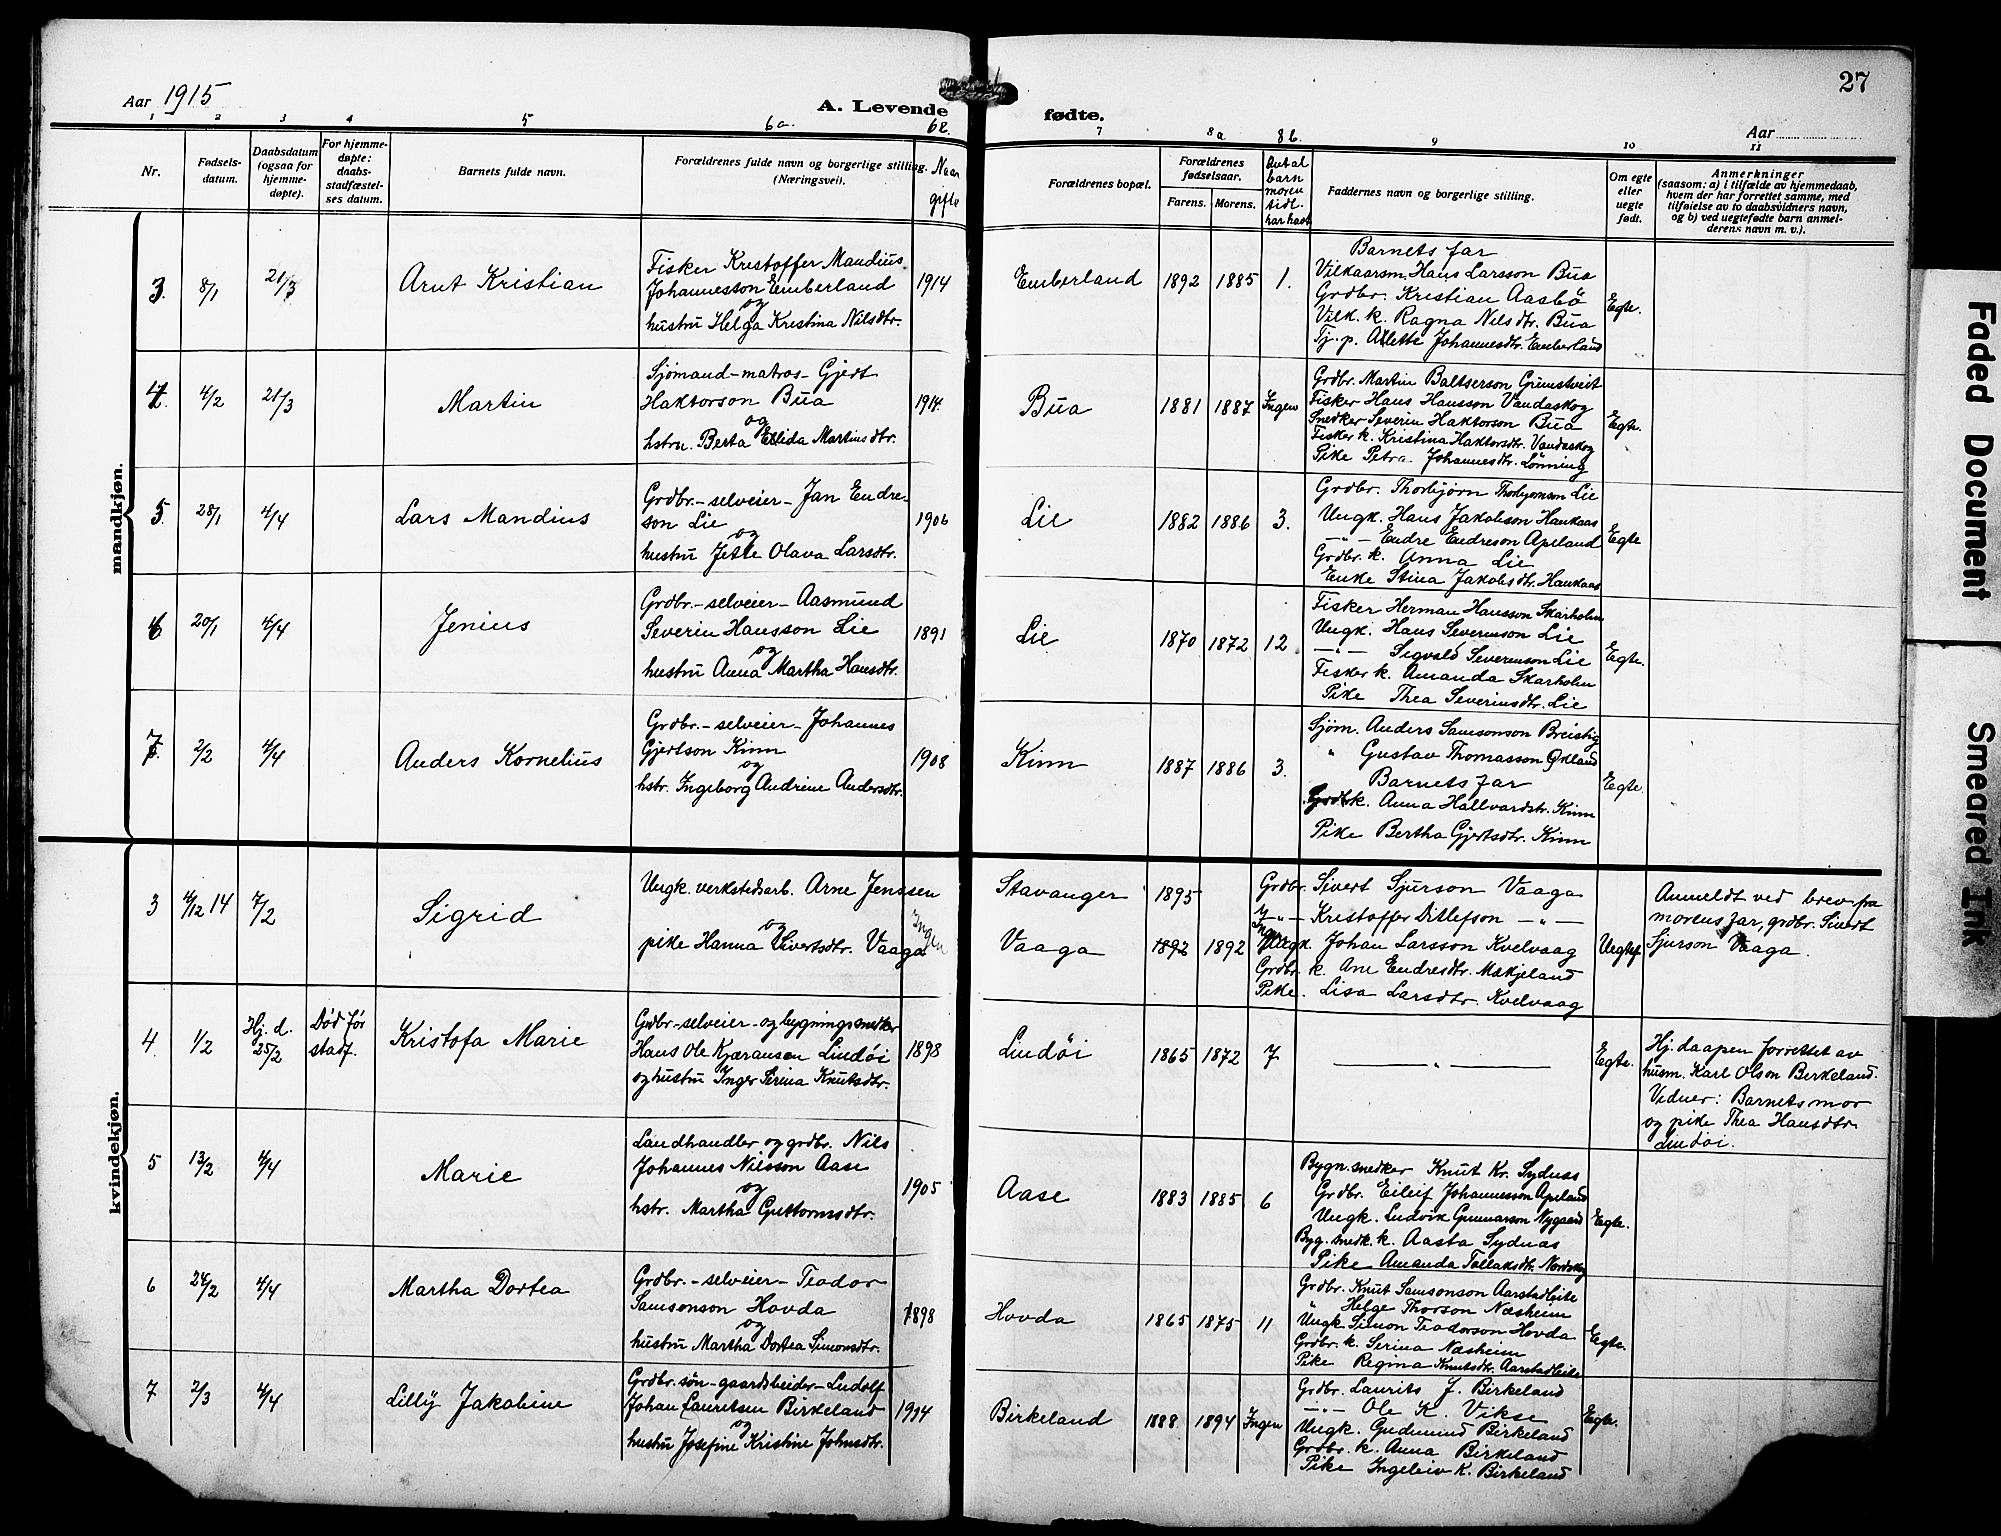 27
Aar 1915
A. Levende
fødte.
Aar
1 2 3 4 5 6a. 6b.
7 8a 8b. 9 10 11
Nr.
Fødsels-
datum.
Daabsdatum
(ogsaa for
hjemme-
døpte).
For hjemme-
døpte:
daabs-
stadfæstel-
ses datum.
Barnets fulde navn.
Forældrenes fulde navn og borgerlige stilling.
(Næringsvei).
Naar
gifte
Forældrenes bopæl.
Forældrenes
fødselsaar.
Farens. Morens.
Antal
barn
moren
tidl.
har havt
Faddernes navn og borgerlige stilling.
Om egte
eller
uegte
født.
Anmerkninger
(saasom: a) i tilfælde av hjemmedaab,
hvem der har forrettet samme, med
tilføielse av to daabsvidners navn,
og b) ved uegtefødte barn anmel-
derens navn m. v.).
mandkjøn.
3. 8/1 21/3 Arnt Kristian
Fisker Kristoffer Mandius
Johannesson Emberland
og
hustru Helga Kristina Nilsdtr.
1914
Emberland 1892 1885 1.
Barnets far
Vilkaarsm. Hans Larsson Bua
Grdbr. Kristian Aasbö
Vilk. k. Ragna Nilsdtr. Bua
Tj. p. Alette Johannesdtr. Emberland
Egte.
4. 4/2 21/3 Martin
Sjömand-matros- Gjert
Haktorson Bua
og
hstru. Berta Elida Martinsdtr.
1914.
Bua 1881 1887 Ingen
Grdbr. Martin Baltserson Grimstveit
Fisker Hans Hansson Vandaskog
Snedker Severin Haktorson Bua
Fisker k. Kristina Haktorsdtr. Vandaskog
Pike Petra Johannesdtr. Lönning
Egte.
5. 28/1 4/4 Lars Mandius
Grdbr.-selveier- Jan Endre-
son Lie
og
hustru Jette Olava Larsdtr.
1906
Lie 1882 1886 3.
Grdbr. Thorbjörn Thorbjörnson Lie
Ungk. Hans Jakobson Haukaas
-"- Endre Endreson Apeland
Grdbr. k. Anna Lie
Enke Stina Jakobsdtr. Haukaas
Egte
6 20/1 4/4 Jenius
Grdbr.-selveier- Aasmund
Severin Hansson Lie
og
hustru Anna Martha Hansdtr.
1891
Lie 1870 1872 12
Fisker Herman Hansson Skarholm
Ungk. Hans Severinson Lie
-"- Sigvald Severinson Lie
Fisker k. Amanda Skarholm
Pike Thea Severinsdtr. Lie
Egte.
7. 2/2 4/4 Anders Kornelius
Grdbr.-selveier- Johannes
Gjertson Kinn
og
hstr. Ingeborg Andrine Andersdtr.
1908
Kinn 1887 1886 3.
Sjöm. Anders Samsonson Breistig
" Gustav Thomasson Økland
Barnets far
Grdbr. k. Anna Hallvardstr. Kinn
Pike Bertha Gjertsdtr. Kinn
Egte.
kvindekjøn.
3 4/12 14 7/2 Sigrid
Ungk. verkstedsarb. Arne Jenssen
og
pike Hanna Sivertsdtr. Vaaga
Ingen
Stavanger 1895
Vaaga 1892 1892 Ingen
Grdbr. Sivert Sjurson Vaaga
-"- Kristoffer Ditlefson -"-
Ungk. Johan Larsson Kvelvaag
Grdbr. k. Ane Endresdtr. Mækjeland
Pike. Lisa Larsdtr. Kvelvaag
Uegte.
Anmeldt ved brev fra
morens far, grdbr. Sivert
Sjurson Vaaga.
4. 1/2 Hj. d.
25/2
Död før
stadf.
Kristofa Marie
Grdbr-selveier-og bygningssnedker
Hans Ole Kjæransen Lindöi
og hustru Inger Serina Knutsdtr.
1898
Lindöi 1865 1872 7 "
Egte.
Hj. daapen forrettet av
husm. Karl Olson Birkeland.
Vidner: Barnets mor
og pike Thea Hansdtr.
Lindöi.
5 13/2 4/4 Marie
Landhandler og grdbr. Nils
Johannes Nilsson Aase
og
hstr. Martha Guttormsdtr.
1905
Aase 1883 1885 6
Bygn. snedker Knut Kr. Sydnes
Grdbr. Eileif Johannesson Apeland
Ungk. Ludvik Gunnarson Nygaard
Byg. snedk. k. Aasta Sydnes
Pike Amanda Tollaksdtr. Nordskog
Egte.
6 24/2 4/4 Martha Dortea
Grdbr.-selveier- Teodor
Samsonson Hovda
og
hustru Martha Dortea Simonsdtr.
1898
Hovda 1865 1875 11
Grdbr. Knut Samsonson Aarstadleite
" Helge Thorson Næsheim
Ungk Simon Teodorson Hovda
Grdbr. k. Serina Næsheim
Pike Regina Knutsdtr. Aarstadleite
Egte.
7 2/3 4/4 Lilly Jakobine
Grdbr. sön-gaardsbeider- Ludolf
Johan Lauritsen Birkeland
og
hustru Josefine Kristine Johnsdtr.
1914
Birkeland 1888 1894 Ingen
Grdbr. Laurits J. Birkeland
-"- Ole K. Vikse
Ungk. Gudmund Birkeland
Grdbr. k. Anna Birkeland
Pike Ingeleiv K. Birkeland
Egte.
Faded Document
Smeared Ink